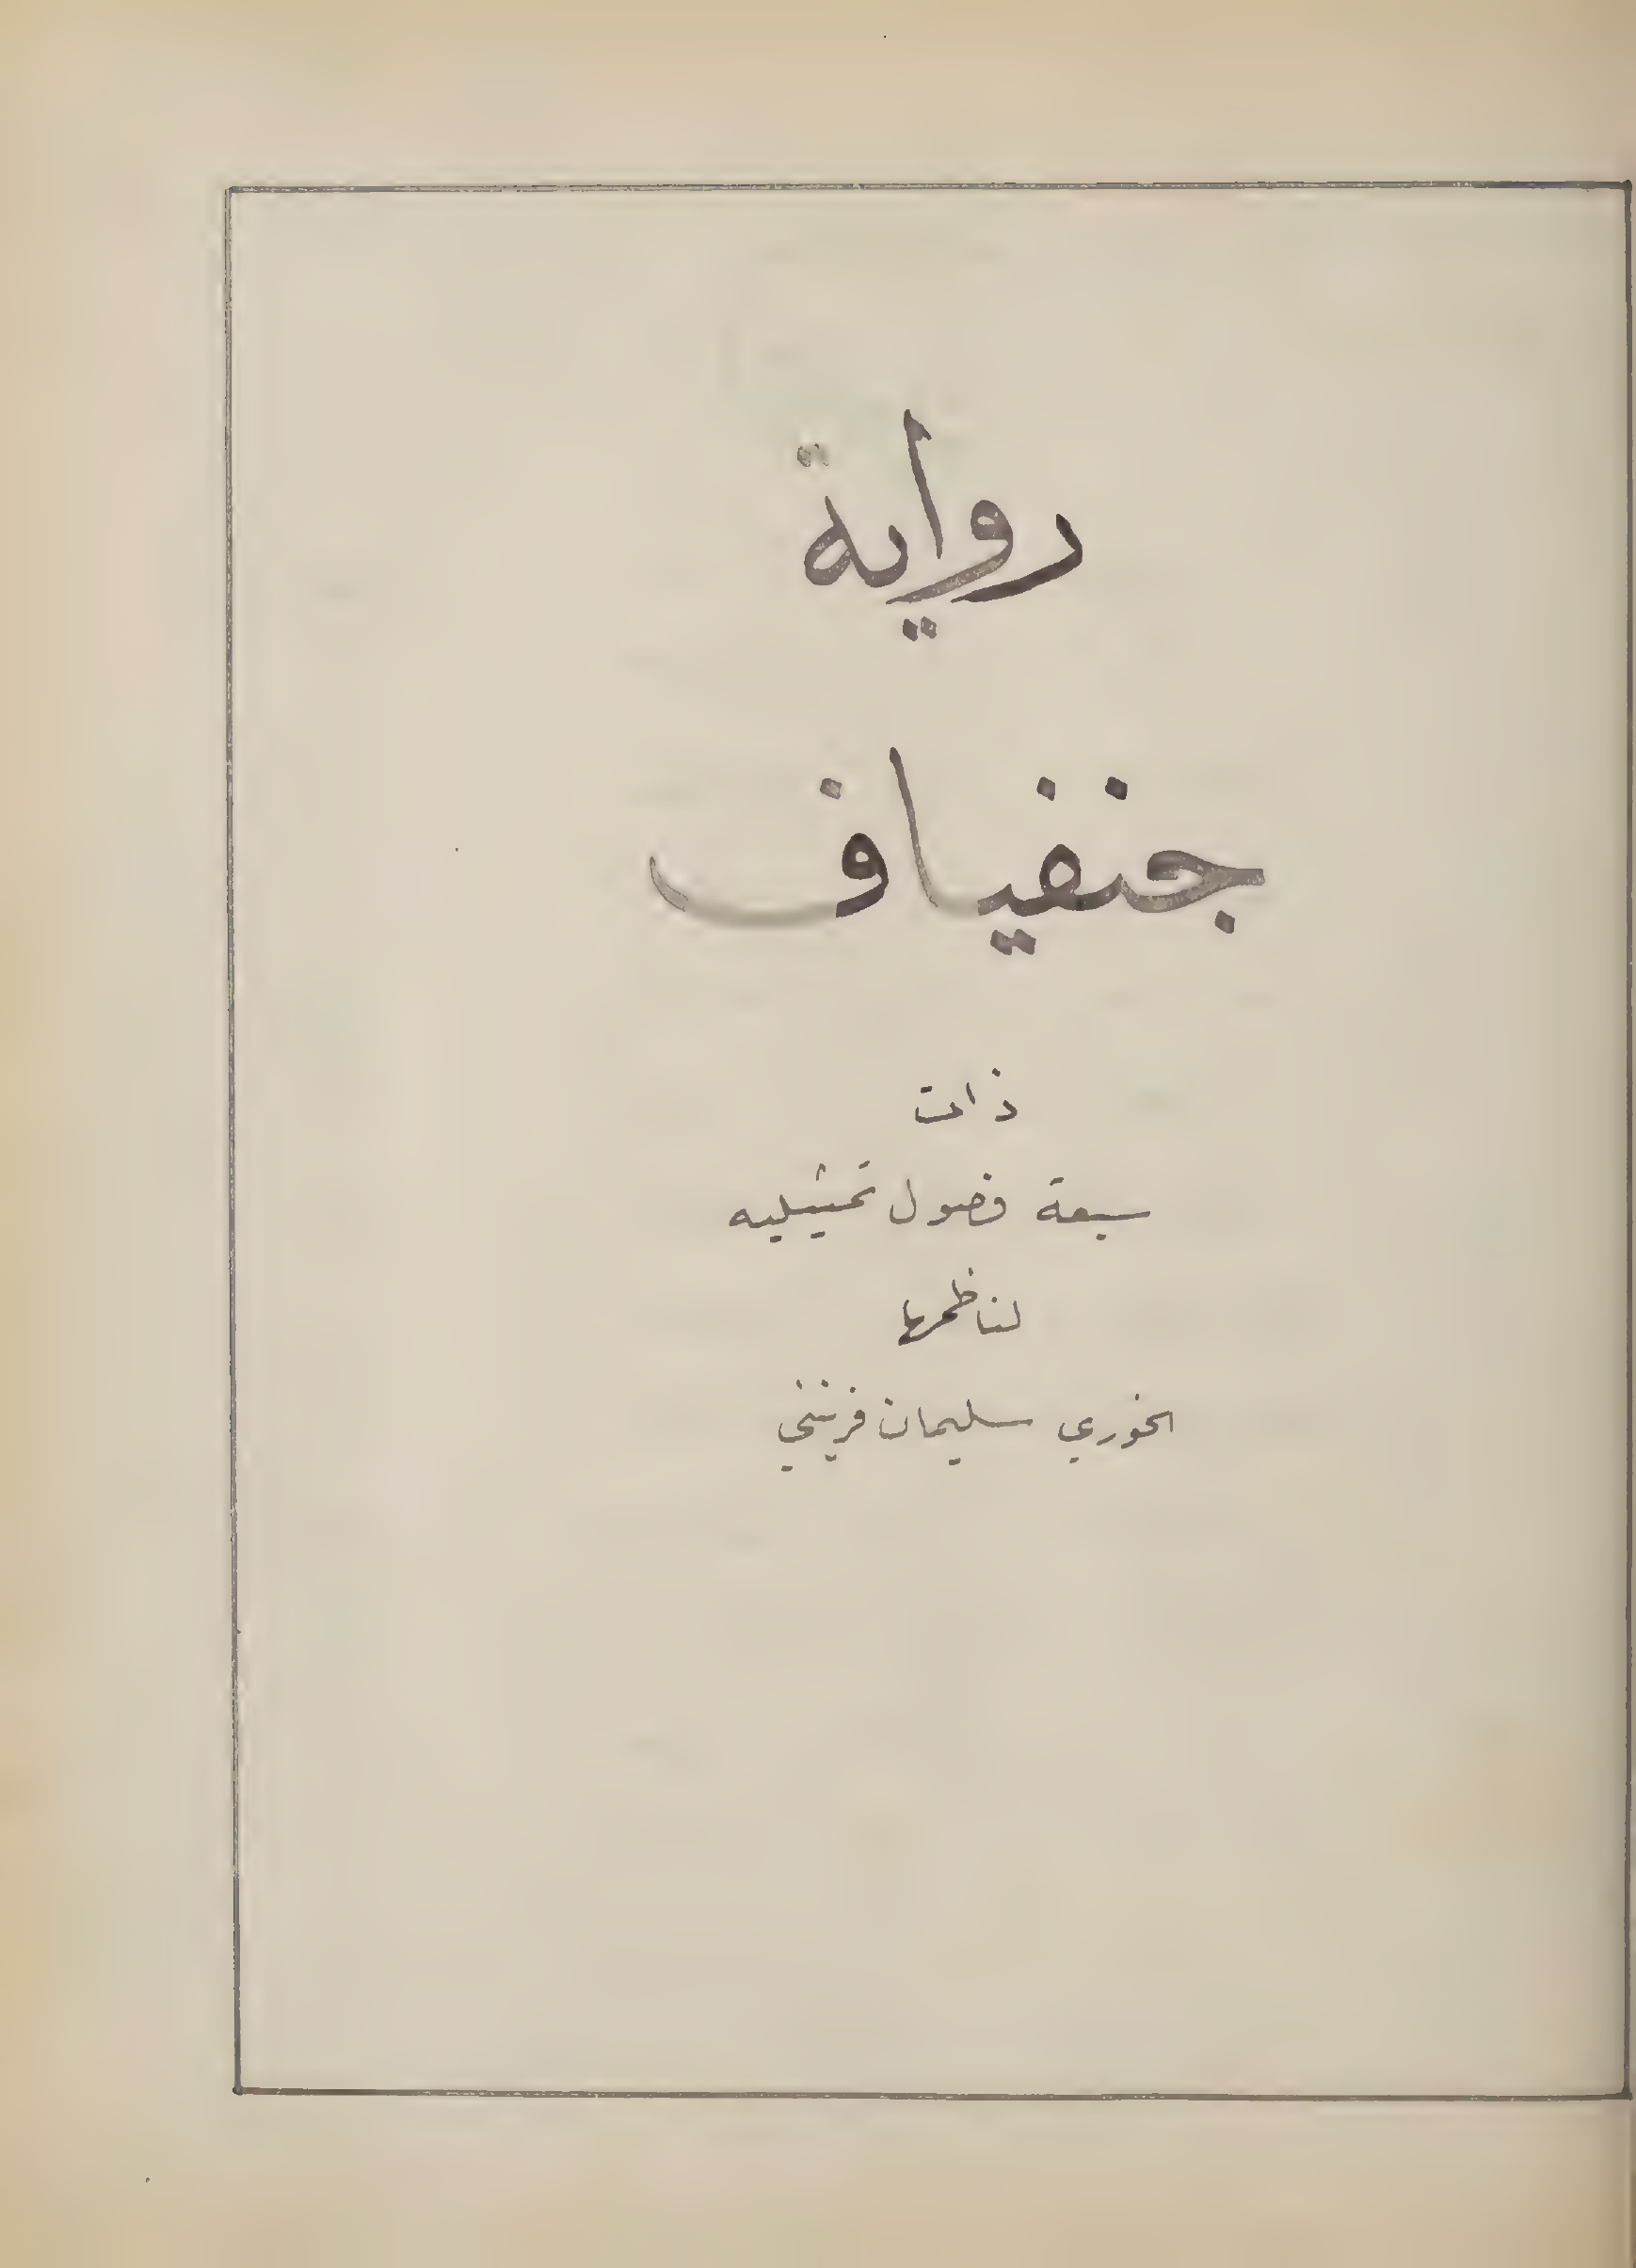 رواية
جنفياف
ذات
سبعة فصول تمثيليه
لناظمها
الخوري سليمان فرينني